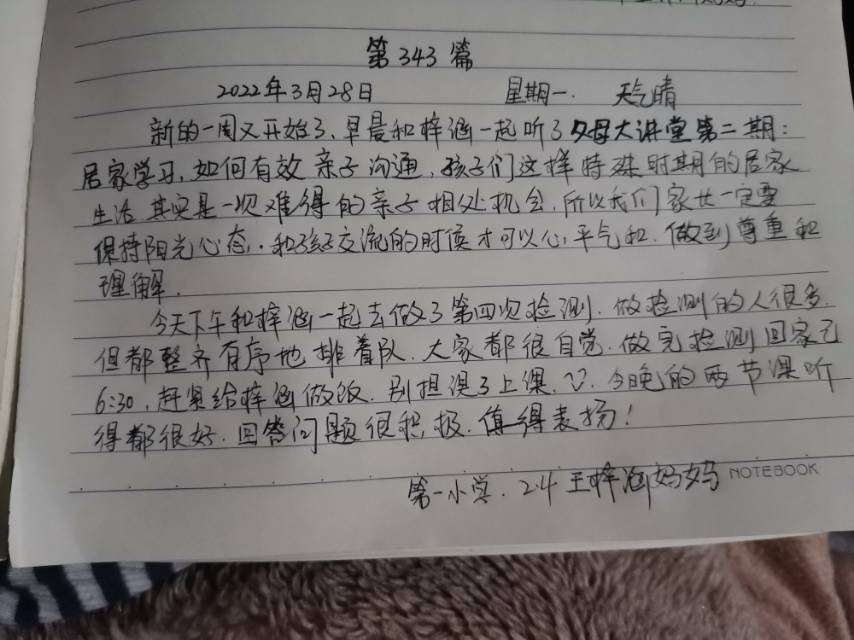 第343篇
2022年3月28日 星期一. 天气晴
新的一周又开始了,早晨和梓涵一起听了父母大讲堂第二期:
居家学习,如何有效亲子沟通,孩子们这样特殊时期的居家
生活其实是一次难得的亲子相处机会,所以我们家长一定要
保持阳光心态,和孩子交流的时候才可以心平气和.做到尊重和
理解.
今天下午和梓涵一起去做了第四次检测.做检测的人很多.
但都整齐有序地排着队.大家都很自觉.做完检测回家已
6:30,赶紧给梓涵做饭.别担误了上课.今晚的两节课听
得都很好.回答问题很积极.值得表扬!
第一小学.2.4王梓涵妈妈
NOTEBOOK